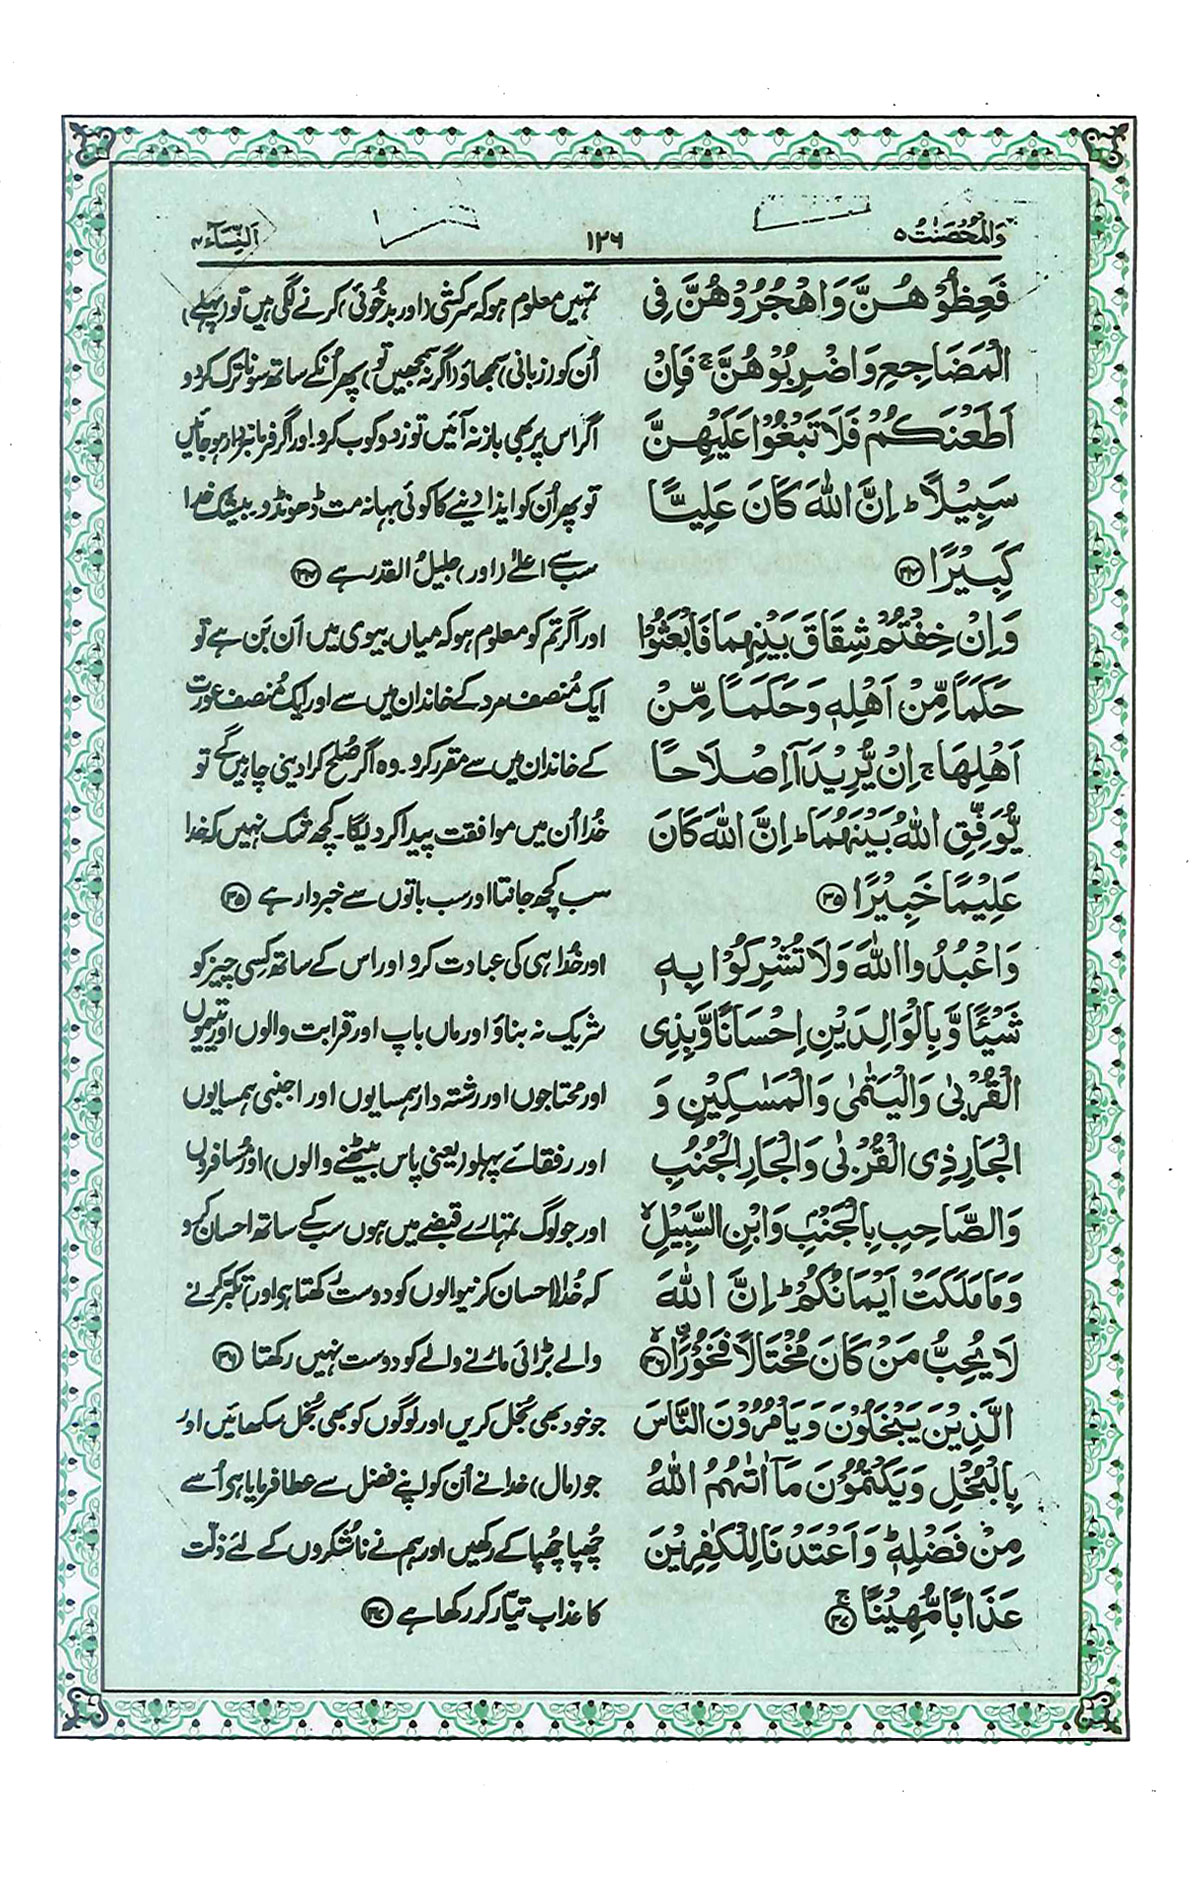 والمحصنت ۵
۱۲۶
النساء ۴
فَعِظُوْهُنَّ وَاهْجُرُوْهُنَّ فِی
الْمَضَاجِعِ وَاضْرِبُوْهُنَّ ۚ فَاِنْ
اَطَعْنَكُمْ فَلَا تَبْغُوْا عَلَیْهِنَّ
سَبِیْلًا ؕ اِنَّ اللّٰهَ كَانَ عَلِیًّا
كَبِیْرًا ﴿۳۴﴾
وَاِنْ خِفْتُمْ شِقَاقَ بَیْنِهِمَا فَابْعَثُوْا
حَكَمًا مِّنْ اَهْلِهٖ وَحَكَمًا مِّنْ
اَهْلِهَا ۚ اِنْ یُّرِیْدَاۤ اِصْلَاحًا
یُّوَفِّقِ اللّٰهُ بَیْنَهُمَا ؕ اِنَّ اللّٰهَ كَانَ
عَلِیْمًا خَبِیْرًا ﴿۳۵﴾
وَاعْبُدُوا اللّٰهَ وَلَا تُشْرِكُوْا بِهٖ
شَیْئًا وَّبِالْوَالِدَیْنِ اِحْسَانًا وَّبِذِی
الْقُرْبٰی وَالْیَتٰمٰی وَالْمَسٰكِیْنِ وَ
الْجَارِ ذِی الْقُرْبٰی وَالْجَارِ الْجُنُبِ
وَالصَّاحِبِ بِالْجَنْۢبِ وَابْنِ السَّبِیْلِ ۙ
وَمَا مَلَكَتْ اَیْمَانُكُمْ ؕ اِنَّ اللّٰهَ
لَا یُحِبُّ مَنْ كَانَ مُخْتَالًا فَخُوْرًا ۙ﴿۳۶﴾
الَّذِیْنَ یَبْخَلُوْنَ وَیَاْمُرُوْنَ النَّاسَ
بِالْبُخْلِ وَیَكْتُمُوْنَ مَاۤ اٰتٰهُمُ اللّٰهُ
مِنْ فَضْلِهٖ ؕ وَاَعْتَدْنَا لِلْكٰفِرِیْنَ
عَذَابًا مُّهِیْنًا ۚ﴿۳۷﴾
تمہیں معلوم ہو کہ سرکشی (اور بدخوئی) کرنے لگی ہیں تو (پہلے)
اُن کو (زبانی) سمجھاؤ (اگر نہ سمجھیں تو) پھر اُنکے ساتھ سونا ترک کردو
اگر اس پر بھی باز نہ آئیں تو زدوکوب کرو۔ اور اگر فرمانبردار ہوجائیں
تو پھر اُن کو ایذا دینے کا کوئی بہانہ مت ڈھونڈو۔ بیشک خدا
سب سے اعلٰے (اور) جلیلُ القدر ہے ﴿۳۴﴾
اور اگر تم کو معلوم ہو کہ میاں بیوی میں اَن بَن ہے تو
ایک مُنصف مرد کے خاندان میں سے اور ایک مُنصف عورت
کے خاندان میں سے مقرر کرو۔ وہ اگر صُلح کرا دینی چاہیں گے تو
خُدا اُن میں موافقت پیدا کر دیگا۔ کچھ شک نہیں کہ خدا
سب کچھ جانتا اور سب باتوں سے خبردار ہے ﴿۳۵﴾
اور خُدا ہی کی عبادت کرو اور اس کے ساتھ کِسی چیز کو
شریک نہ بناؤ اور ماں باپ اور قرابت والوں اور یتیموں
اور محتاجوں اور رشتہ دار ہمسایوں اور اجنبی ہمسایوں
اور رفقائے پہلو (یعنی پاس بیٹھنے والوں) اور مُسافروں
اور جو لوگ تمہارے قبضے میں ہوں سب کے ساتھ احسان کرو
کہ خُدا (احسان کرنیوالوں کو دوست رکھتا ہی اور) تکبّر کرنے
والے بڑائی مارنے والے کو دوست نہیں رکھتا ﴿۳۶﴾
جو خود بھی بُخل کریں اور لوگوں کو بھی بُخل سکھائیں اور
جو (مال) خدا نے اُن کو اپنے فضل سے عطا فرمایا ہی اُسے
چُھپا چُھپا کے رکھیں اور ہم نے ناشُکروں کے لئے ذلّت
کا عذاب تیّار کر رکھا ہے ﴿۳۷﴾